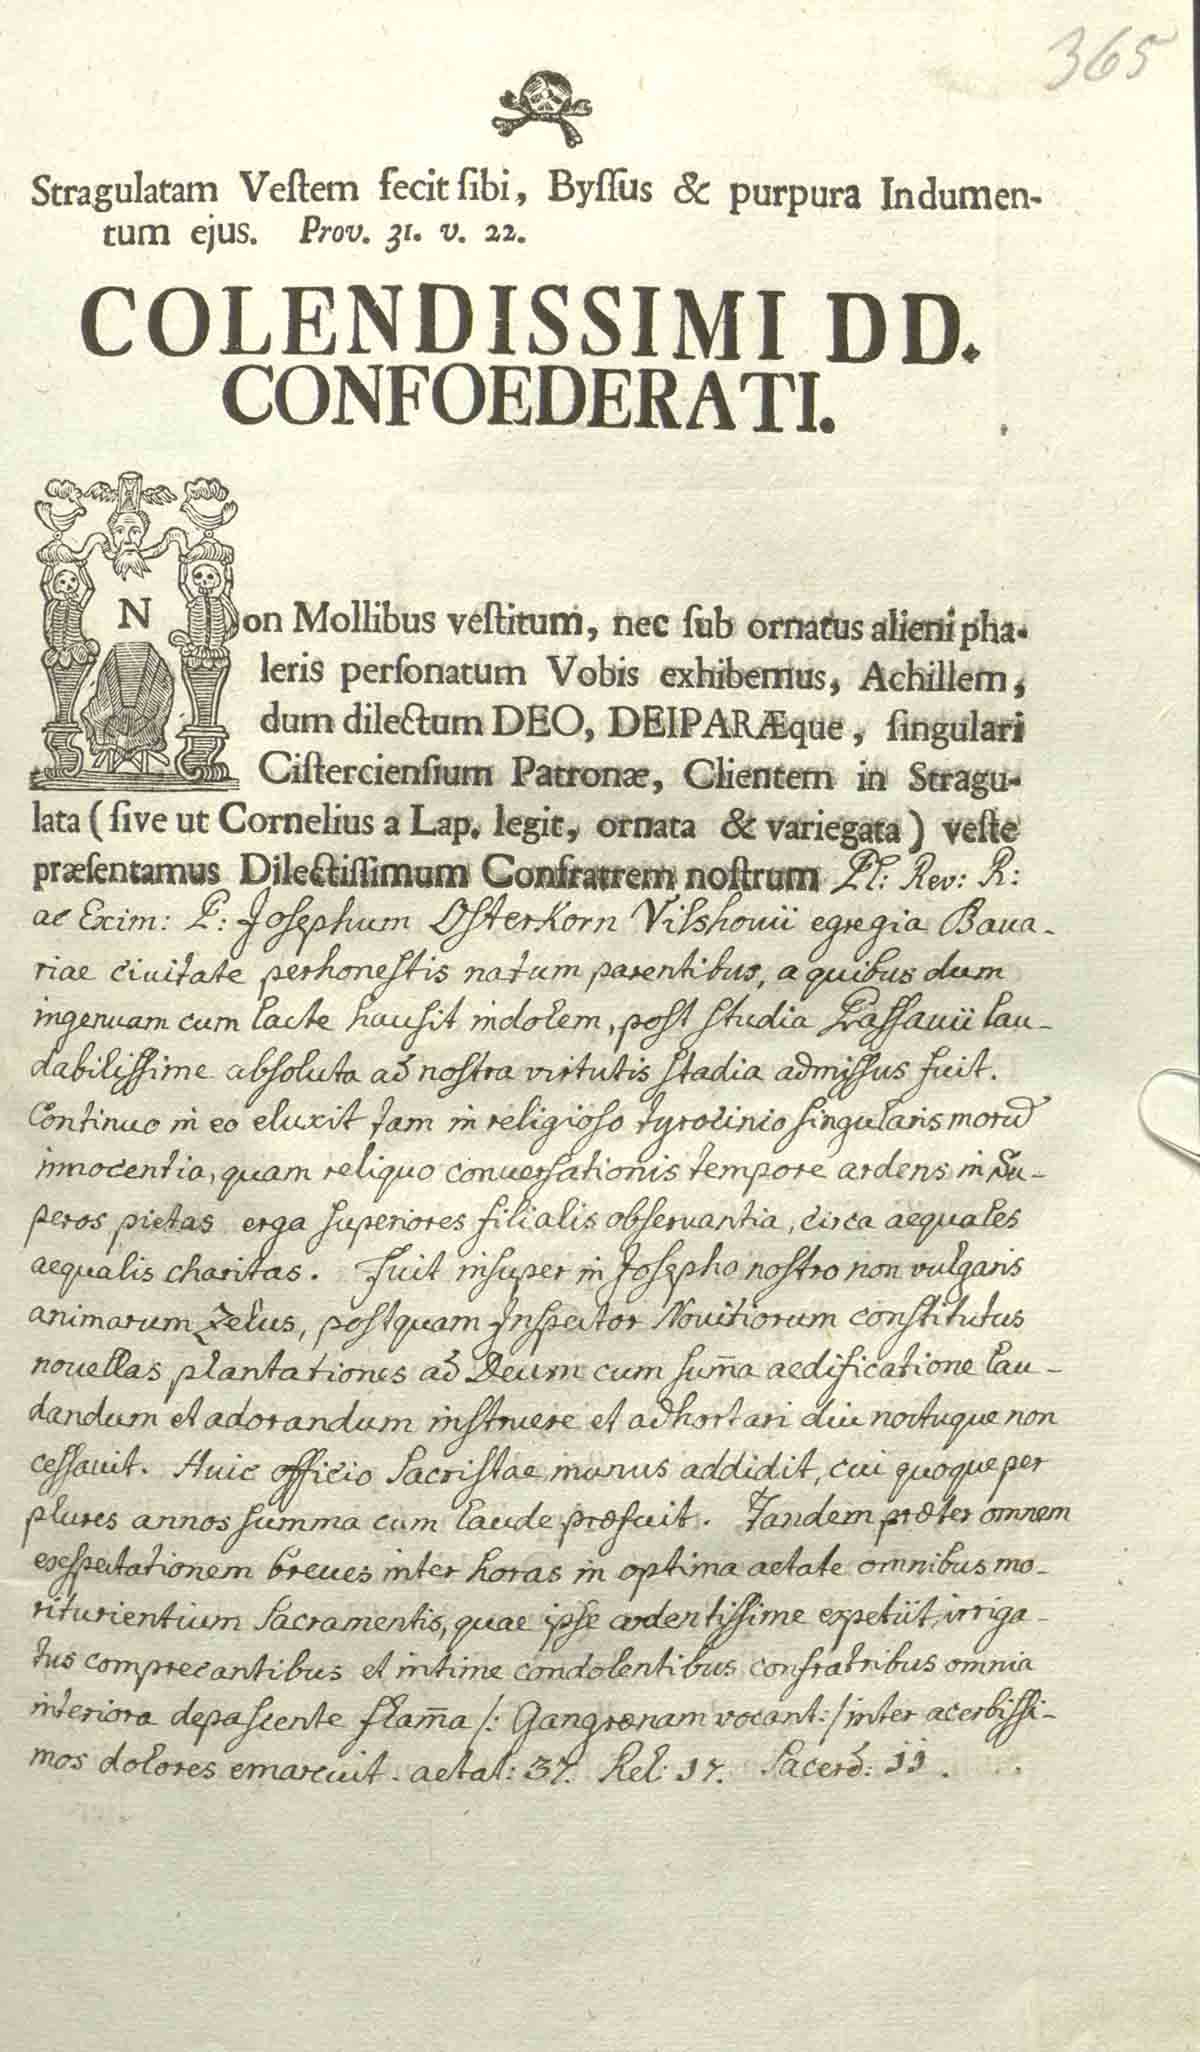 365
Stragulatam Veſtem fecit ſibi, Byſſus & purpura Indumen-
tum ejus. Prov. 31. v. 22.
COLENDISSIMI DD.
CONFOEDERATI.
Non Mollibus veſtitum, nec ſub ornatus alieni pha-
leris perſonatum Vobis exhibemus, Achillem,
dum dilectum DEO, DEIPARÆque, ſingulari
Ciſtercienſium Patronæ, Clientem in Stragu-
lata (ſive ut Cornelius a Lap. legit, ornata & variegata) veſte
præſentamus Dilectiſſimum Confratrem noſtrum Pl: Rev: R:
ac Exim: P: Josephum Osterkorn Vilshovii egregia Bava-
riae civitate perhonestis natum parentibus, a quibus dum
ingenuam cum lacte hausit indolem, post studia Passavii lau-
dabilissime absoluta ad nostra virtutis stadia admissus fuit.
Continuo in eo eluxit tam in religioso tyrocinio singularis morū
innocentia, quam reliquo conversationis tempore ardens in Su-
peros pietas erga superiores filialis observantia, circa aequales
aequalis charitas. Fuit insuper in Josepho nostro non vulgaris
animarum zelus, postquam Inspector Novitiorum constitutus
novellas plantationes ad Deum cum sum̄a aedificatione lau-
dandum et adorandum instruere et adhortari diu noctuque non
cessavit. Huic officio Sacristae munus addidit, cui quoque per
plures annos summa cum laude præfuit. Tandem præter omnem
exspectationem breves inter horas in optima aetate omnibus mo-
riturientium Sacramentis, quae ipse ardentissime expetiit, irriga-
tus comprecantibus et intime condolentibus confratribus omnia
interiora depascente flam̄a /: Gangrænam vocant :/ inter acerbissi-
mos dolores emarcuit. aetat: 37. Rel: 17. Sacerd: 11.